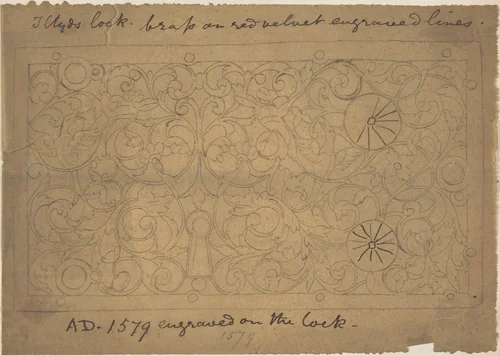 lock. brass on red velvet engraved lines.
AD. 1579 engraved on the lock -
1579